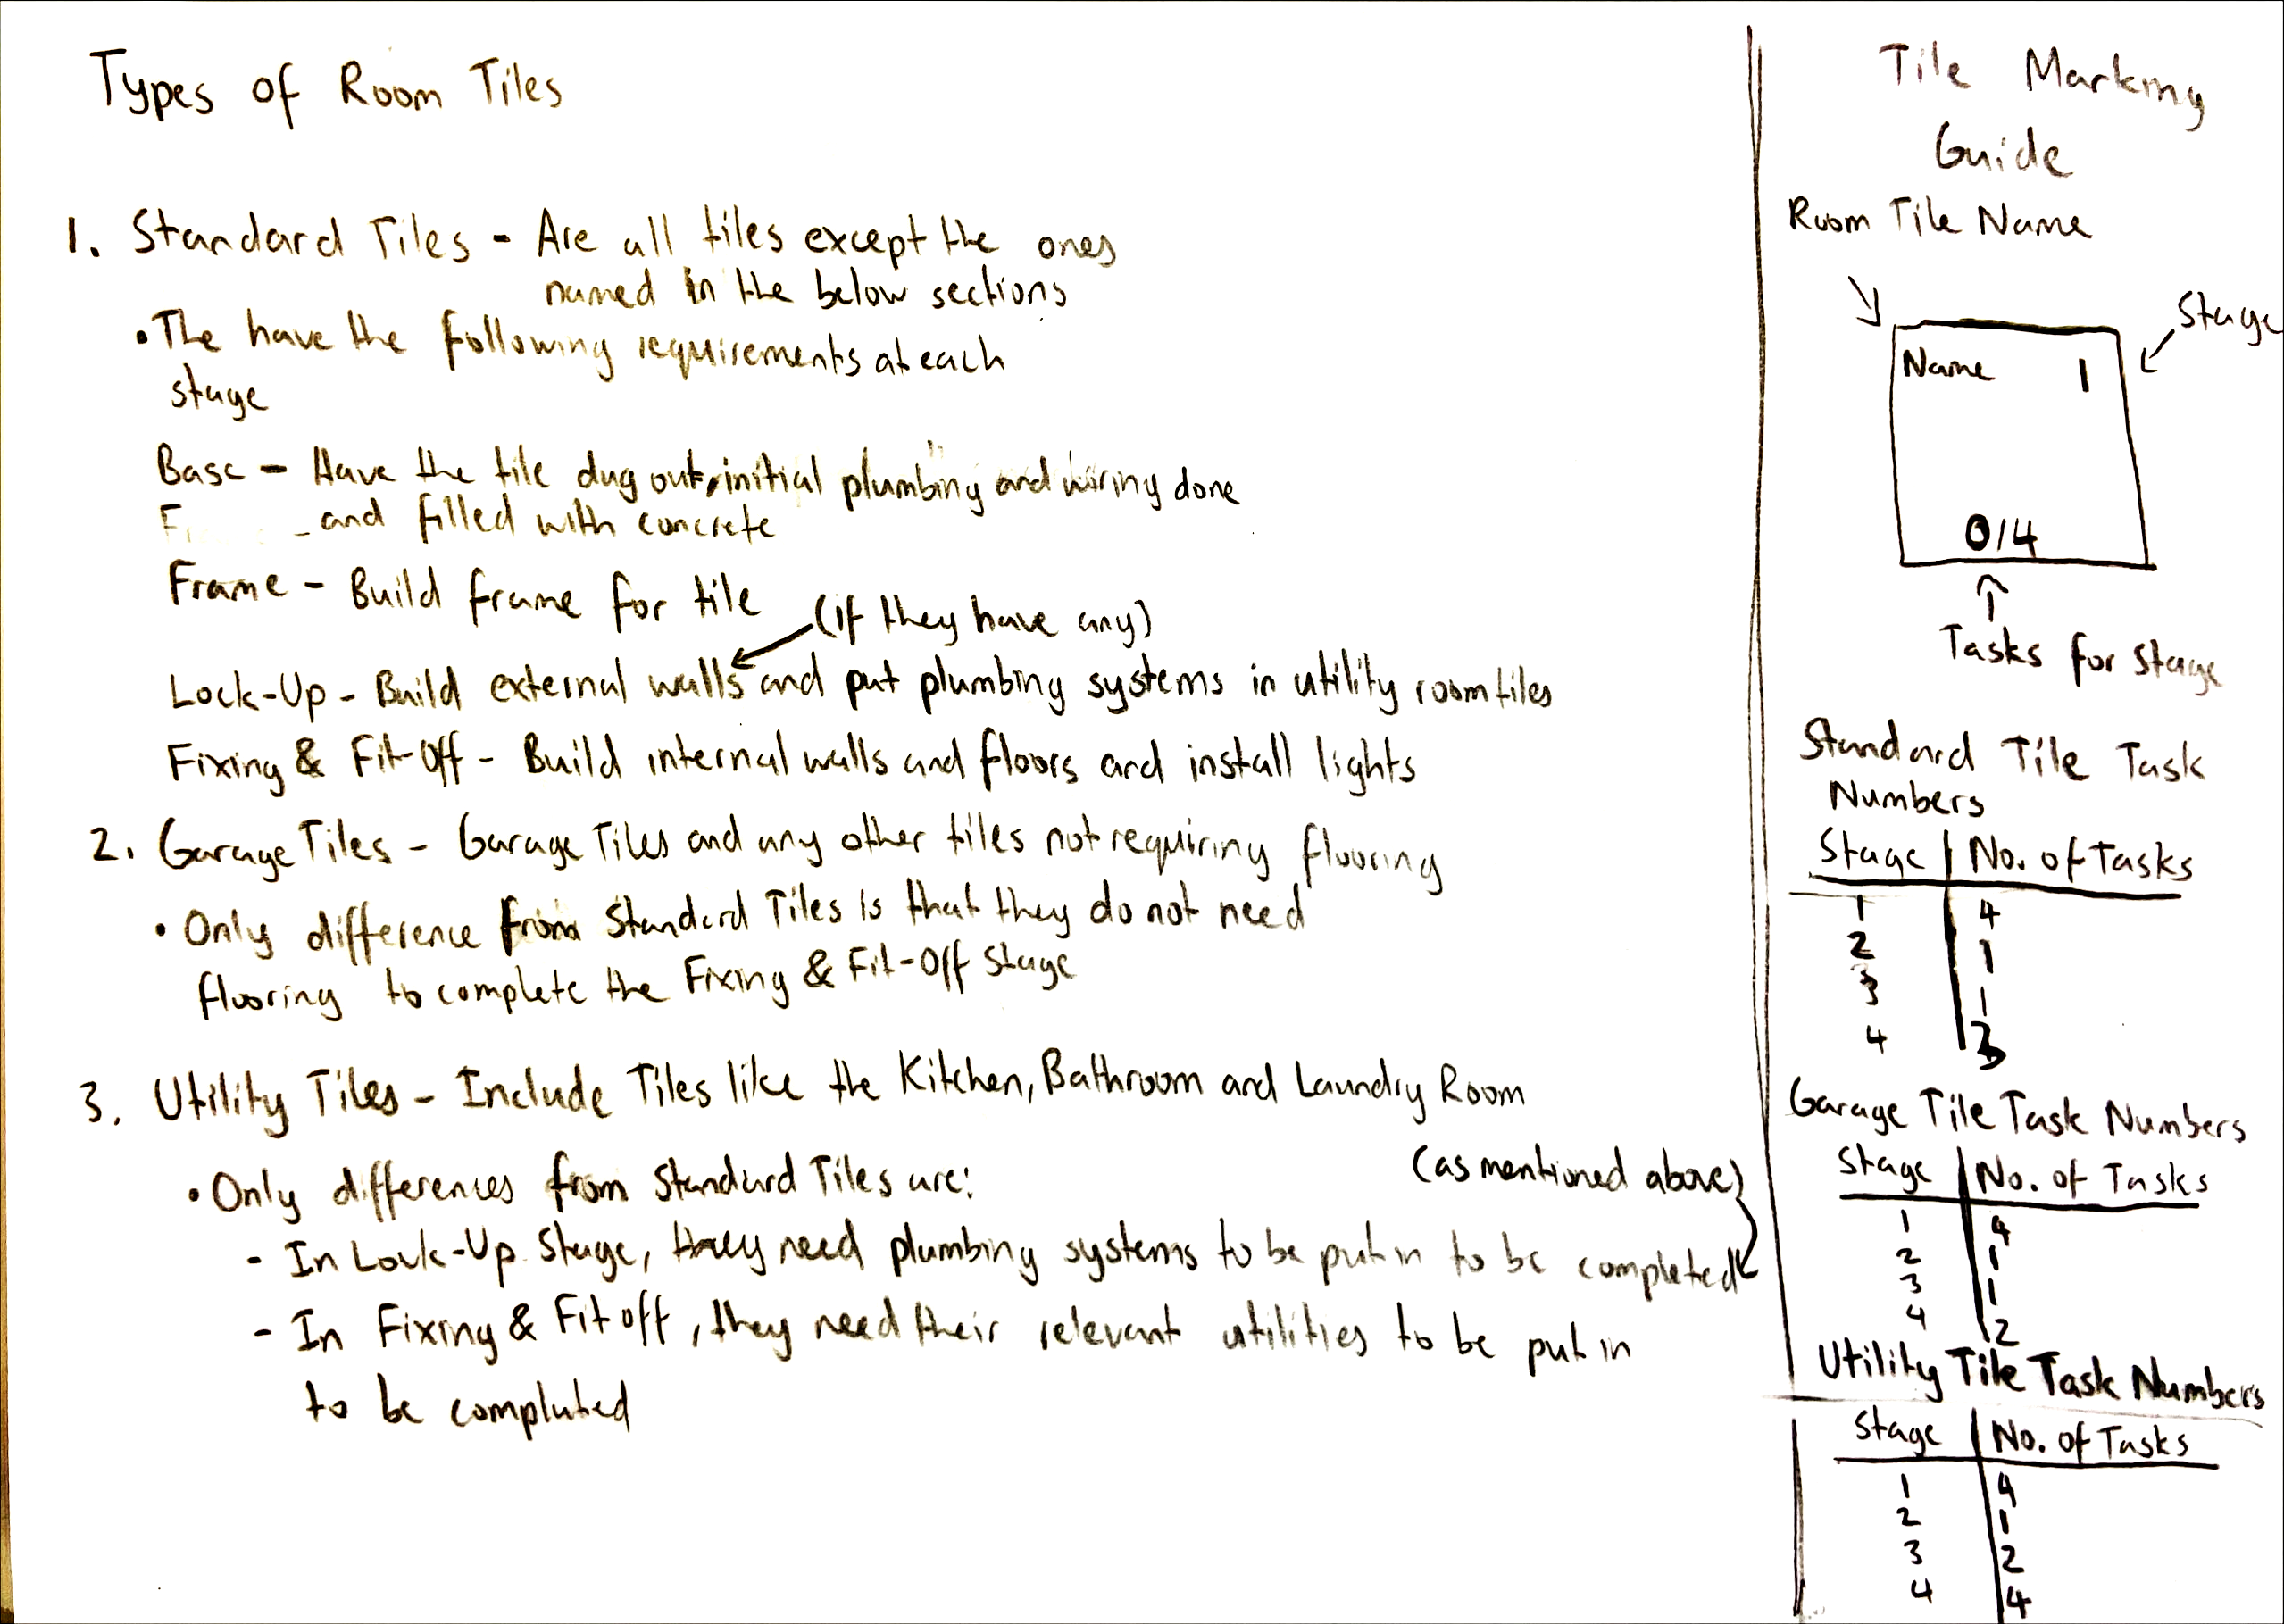 Types of Room Tiles
1. Standard Tiles - Are all tiles except the ones
named in the below sections
• The have the following requirements at each
stage
Base - Have the tile dug out, initial plumbing and wiring done
and filled with concrete
Frame - Build frame for tile
(if they have any)
Lock-Up - Build external walls and put plumbing systems in utility room tiles
Fixing & Fit-Off - Build internal walls and floors and install lights
2. Garage Tiles - Garage Tiles and any other tiles not requiring flooring
• Only difference from Standard Tiles is that they do not need
flooring to complete the Fixing & Fit-Off Stage
3. Utility Tiles - Include Tiles like the Kitchen, Bathroom and Laundry Room
• Only differences from Standard Tiles are:
(as mentioned above)
- In Lock-Up Stage, they need plumbing systems to be put in to be completed
- In Fixing & Fit off, they need their relevant utilities to be put in
to be completed
Tile Marking
Guide
Room Tile Name
Stage
Name 1
0/4
Tasks for Stage
Standard Tile Task
Numbers
Stage No. of Tasks
1 4
2 1
3 1
4 3
Garage Tile Task Numbers
Stage No. of Tasks
1 4
2 1
3 1
4 2
Utility Tile Task Numbers
Stage No. of Tasks
1 4
2 1
3 2
4 4